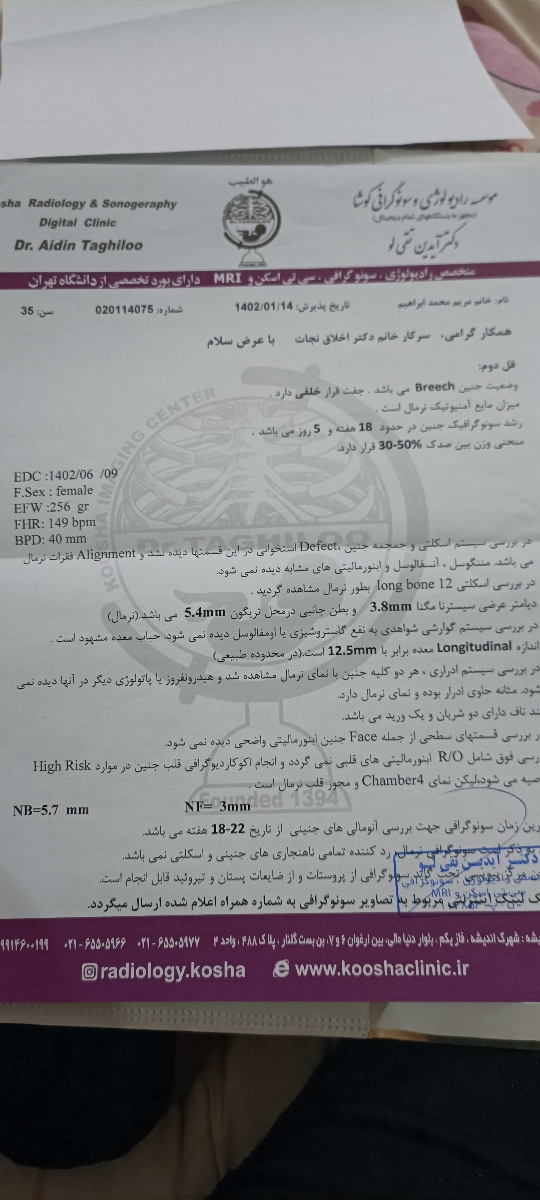 هوالطبیب
موسسه رادیولوژی و سونوگرافی کوشا
sha Radiology & Sonogeraphy
(مجهز به دستگاههای تمام دیجیتال)
Digital Clinic
دکتر آیدین تقی لو
Dr. Aidin Taghiloo
متخصص رادیولوژی ، سونوگرافی ، سی تی اسکن و MRI دارای بورد تخصصی از دانشگاه تهران
نام: خانم مریم محمد ابراهیم تاریخ پذیرش: 1402/01/14 شماره: 020114075 سن: 35
همکار گرامی، سرکار خانم دکتر اخلاق نجات با عرض سلام
قل دوم:
وضعیت جنین Breech می باشد . جفت قرار خلفی دارد .
میزان مایع آمنیوتیک نرمال است .
رشد سونوگرافیک جنین در حدود 18 هفته و 5 روز می باشد .
منحنی وزن بین صدک 50%-30 قرار دارد.
EDC :1402/06 /09
F.Sex : female
EFW :256 gr
FHR: 149 bpm
BPD: 40 mm
در بررسی سیستم اسکلتی و جمجمه جنین ،Defect استخوانی در این قسمتها دیده نشد و Alignment فقرات نرمال
می باشد. مننگوسل ، آنسفالوسل و ابنورمالیتی های مشابه دیده نمی شود.
در بررسی اسکلتی 12 long bone بطور نرمال مشاهده گردید .
دیامتر عرضی سیسترنا مگنا 3.8mm و بطن جانبی درمحل تریگون 5.4mm می باشد.(نرمال)
در بررسی سیستم گوارشی شواهدی به نفع گاستروشیزی یا اومفالوسل دیده نمی شود. حباب معده مشهود است .
اندازه Longitudinal معده برابر با 12.5mm است.(در محدوده طبیعی)
در بررسی سیستم ادراری ، هر دو کلیه جنین با نمای نرمال مشاهده شد و هیدرونفروز یا پاتولوژی دیگر در آنها دیده نمی
شود. مثانه حاوی ادرار بوده و نمای نرمال دارد.
ند ناف دارای دو شریان و یک ورید می باشد.
ر بررسی قسمتهای سطحی از جمله Face جنین ابنورمالیتی واضحی دیده نمی شود.
رسی فوق شامل R/O ابنورمالیتی های قلبی نمی گردد و انجام اکوکاردیوگرافی قلب جنین در موارد High Risk
صیه می شود،لیکن نمای Chamber4 و محور قلب نرمال است .
NB=5.7 mm NF= 3mm
Founded 1394
رین زمان سونوگرافی جهت بررسی آنومالی های جنینی از تاریخ 22-18 هفته می باشد.
ذکر است سونوگرافی نرمال رد کننده تمامی ناهنجاری های جنینی و اسکلتی نمی باشد.
تحت گاید سونوگرافی از پروستات و از ضایعات پستان و تیروئید قابل انجام است.
ک لینک اینترنتی مربوط به تصاویر سونوگرافی به شماره همراه اعلام شده ارسال میگردد.
دکتر آیدین تقی لو
یشه : شهرک اندیشه ، فاز یکم ، بلوار دنیا مالی، بین ارغوان ۶ و ۷، بن بست گلنار ، پلاک ۴۸۸ ، واحد ۴ ۰۲۱-۶۵۵۰۵۹۷۷ ۰۲۱-۶۵۵۰۵۹۶۶ ۹۹۱۴۶۰۰۱۹۹
radiology.kosha www.kooshaclinic.ir